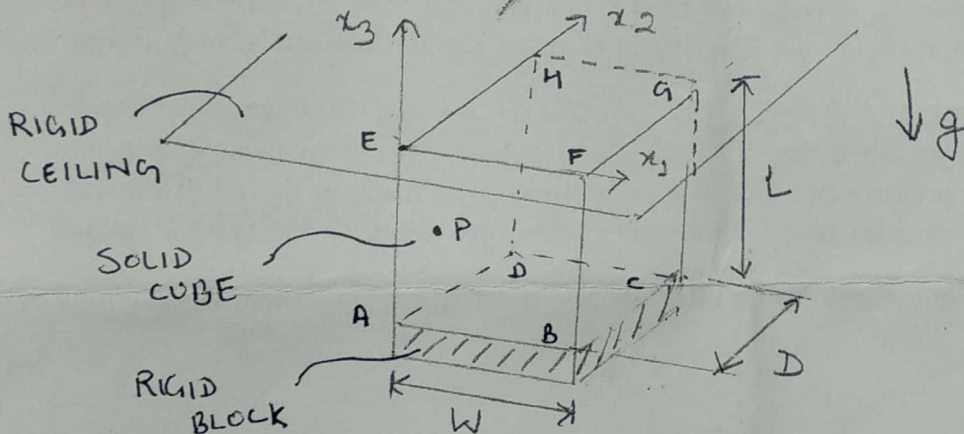 x3
x2
H
G
RIGID
CEILING
E
F
x1
g
L
P
SOLID
CUBE
D
C
A
B
D
RIGID
BLOCK
W